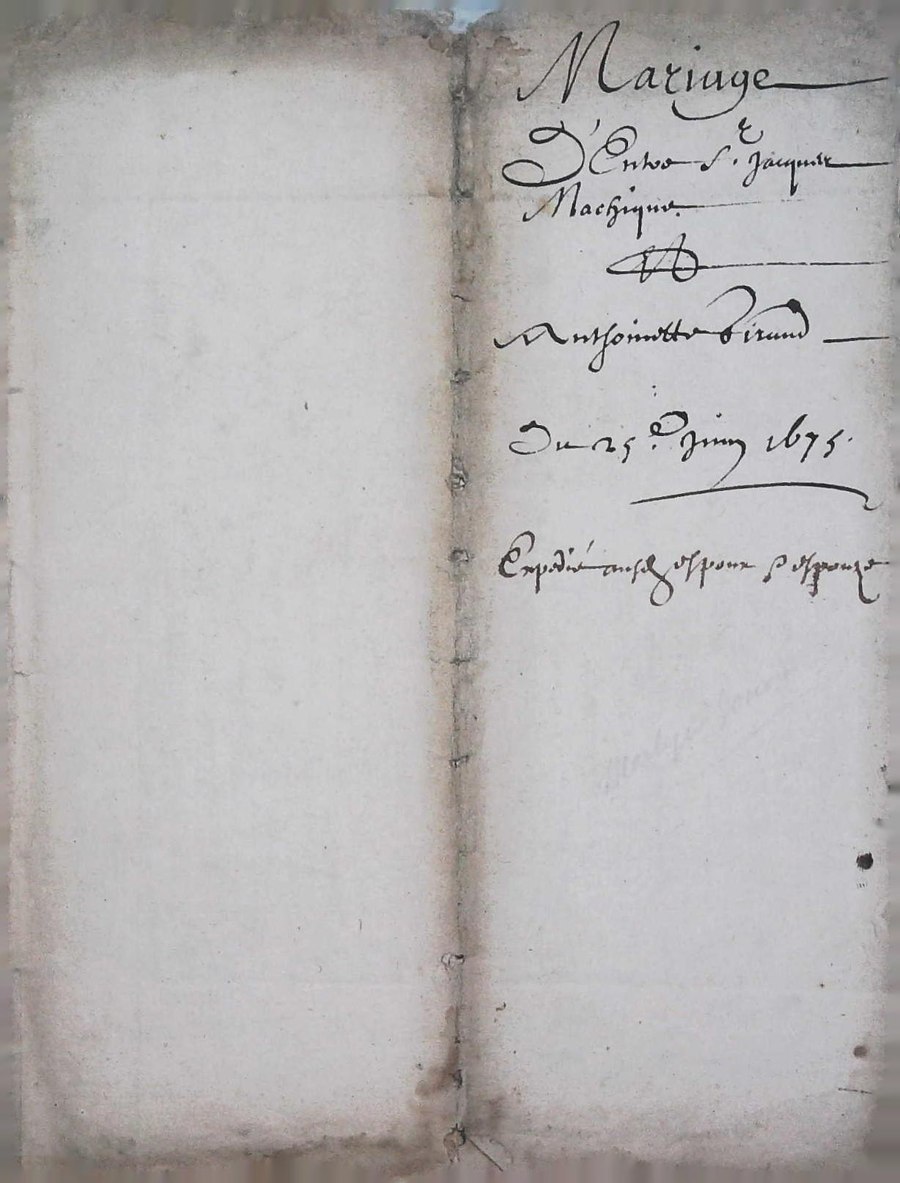 Mariage
D'Entre Sr. Jacques
Machique
Et
Anthoinette Giraud
Du 25e Juin 1675.
Expedié ausd espoux & espouze